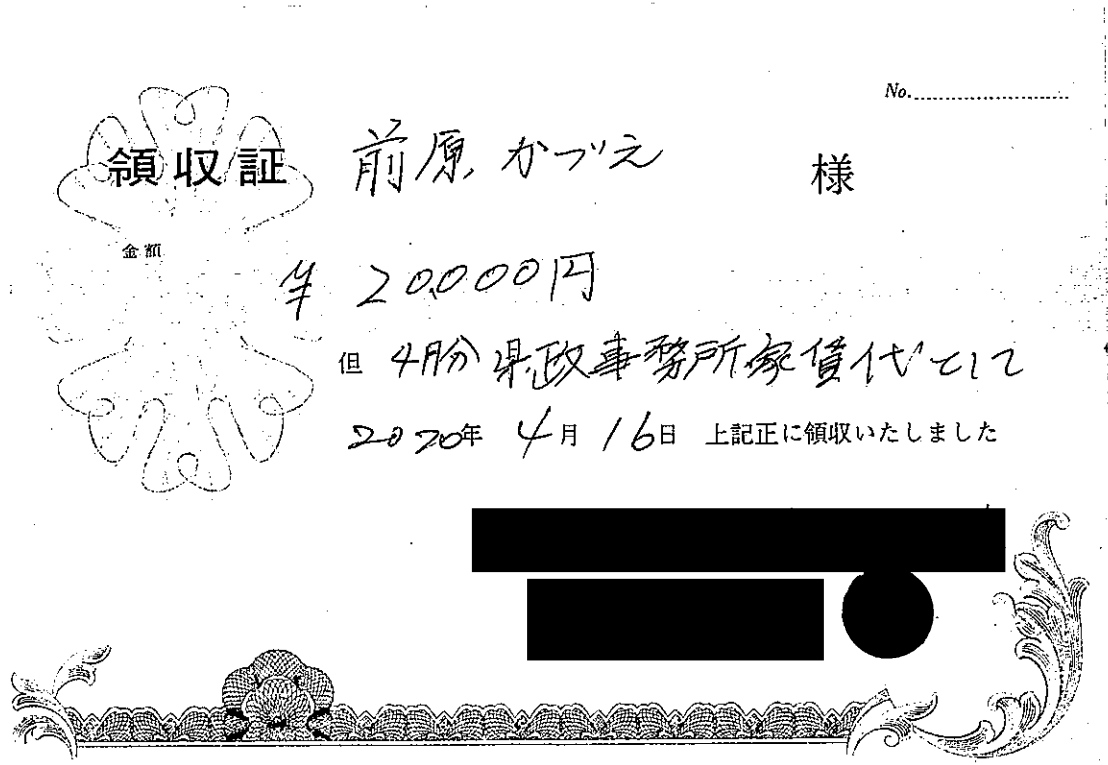 No.
領収証 前原かづえ 様
金額
¥ 20,000円
但 4月分県政事務所家賃代として
2020年 4月 16日 上記正に領収いたしました